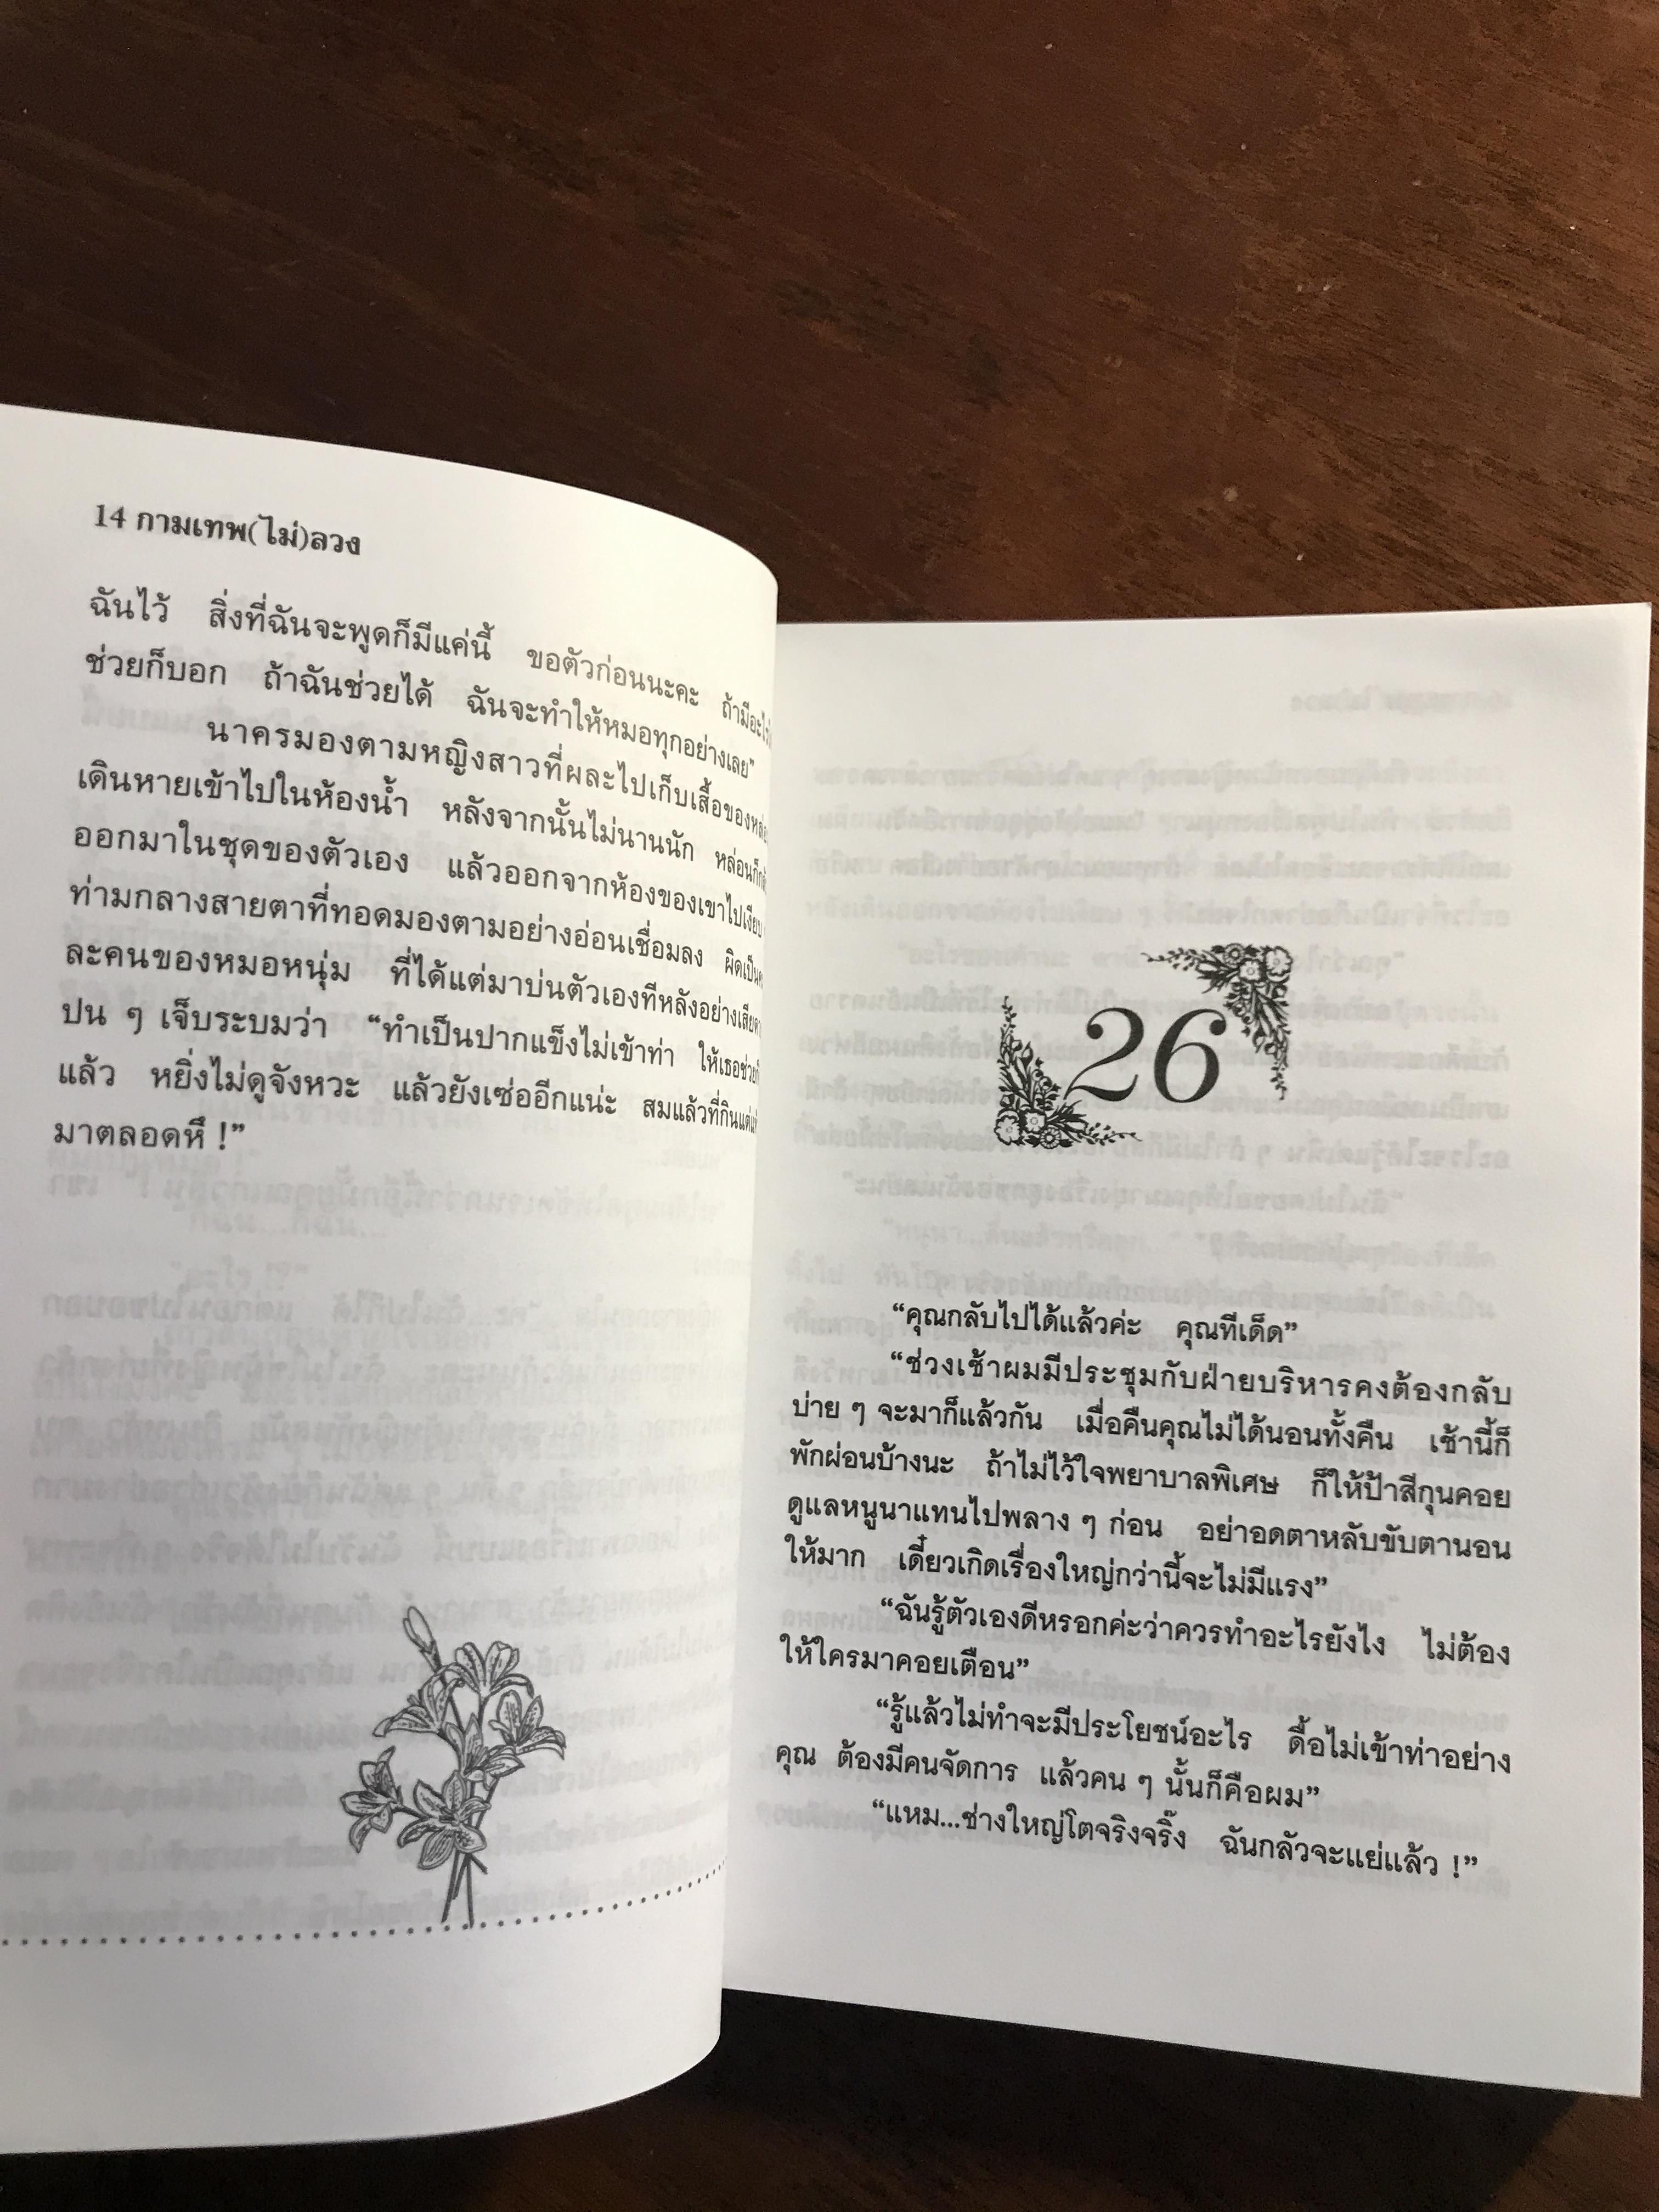 14 กามเทพ(ไม่)ลวง
ฉันไว้ สิ่งที่ฉันจะพูดก็มีแค่นี้ ขอตัวก่อนนะคะ ถ้ามีอะไร
ช่วยก็บอก ถ้าฉันช่วยได้ ฉันจะทำให้หมอทุกอย่างเลย”
นาครมองตามหญิงสาวที่ผละไปเก็บเสื้อของ
เดินหายเข้าไปในห้องน้ำ หลังจากนั้นไม่นานนัก หล่อนก็
ออกมาในชุดของตัวเอง แล้วออกจากห้องของเขาไปเงียบ
ท่ามกลางสายตาที่ทอดมองตามอย่างอ่อนเชื่อมลง ผิดเป็น
ละคนของหมอหนุ่ม ที่ได้แต่มาบ่นตัวเองทีหลังอย่าง
ปน ๆ เจ็บระบมว่า “ทำเป็นปากแข็งไม่เข้าท่า ให้เธอช่วย
แล้ว หยิ่งไม่ดูจังหวะ แล้วยังเซ่ออีกแน่ะ สมแล้วที่กิน
มาตลอดหึ !”
26
“คุณกลับไปได้แล้วค่ะ คุณทีเด็ด”
“ช่วงเช้าผมมีประชุมกับฝ่ายบริหารคงต้องกลับ
บ่าย ๆ จะมาก็แล้วกัน เมื่อคืนคุณไม่ได้นอนทั้งคืน เช้านี้ก็
พักผ่อนบ้างนะ ถ้าไม่ไว้ใจพยาบาลพิเศษ ก็ให้ป้าสีกุนคอย
ดูแลหนูนาแทนไปพลาง ๆ ก่อน อย่าอดตาหลับขับตานอน
ให้มาก เดี๋ยวเกิดเรื่องใหญ่กว่านี้จะไม่มีแรง”
“ฉันรู้ตัวเองดีหรอกค่ะว่าควรทำอะไรยังไง ไม่ต้อง
ให้ใครมาคอยเตือน”
“รู้แล้วไม่ทำจะมีประโยชน์อะไร ดื้อไม่เข้าท่าอย่าง
คุณ ต้องมีคนจัดการ แล้วคน ๆ นั้นก็คือผม”
“แหม...ช่างใหญ่โตจริงจริ๊ง ฉันกลัวจะแย่แล้ว !”